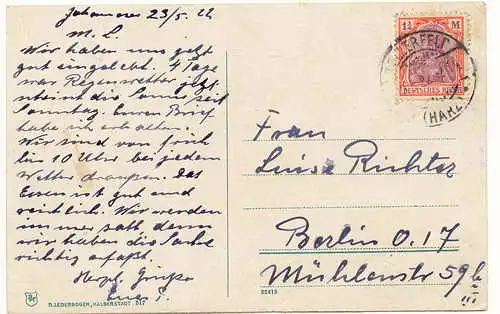 Johannes 23/5. 22
M. L.
Wir haben uns jetzt
gut eingelebt. 4 Tage
war Regenwetter jetzt
scheint die Sonne seit
Sonntag. Euren Brief
habe ich erhalten.
Wir sind von früh
bis 10 Uhr bei jedem
Wetter draußen. Das
Essen ist gut und
reichlich. Wir werden
immer satt, denn
wir haben die Sache
richtig erfaßt.
Herzl. Grüße
Euer
1¼ M
DEUTSCHES REICH
(HARZ
Frau
Luise Richter
Berlin O.17
Mühlenstr 59b
III
R. LEDERBOGEN, HALBERSTADT. 517
92413